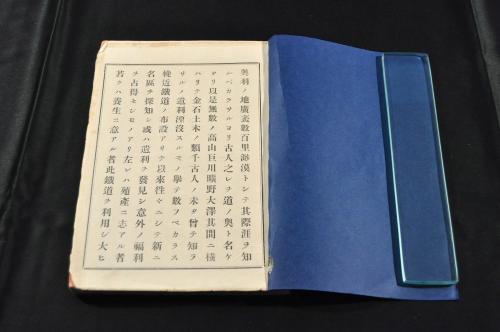 奥羽ノ地廣袤數百里渺漠トシテ其際涯ヲ知
ルベカラサルヨリ古人之レヲ道ノ奥ト名ケ
タリ以是無數ノ高山巨川曠野大澤其間ニ横
ハリテ金石土木ノ類千古人ノ未タ曾テ知ラ
サルノ遺利湮沒スルモノ擧テ數フベカラス
輓近鐵道ノ布設アリテ以來徃々ニシテ新ニ
名區ヲ探知シ或ハ遺利ヲ發見シ意外ノ福利
ヲ占得セシモノアリ左レハ殖產ニ志アル者
若クハ養生ニ意アル者此鐵道ヲ利用シ大ヒ